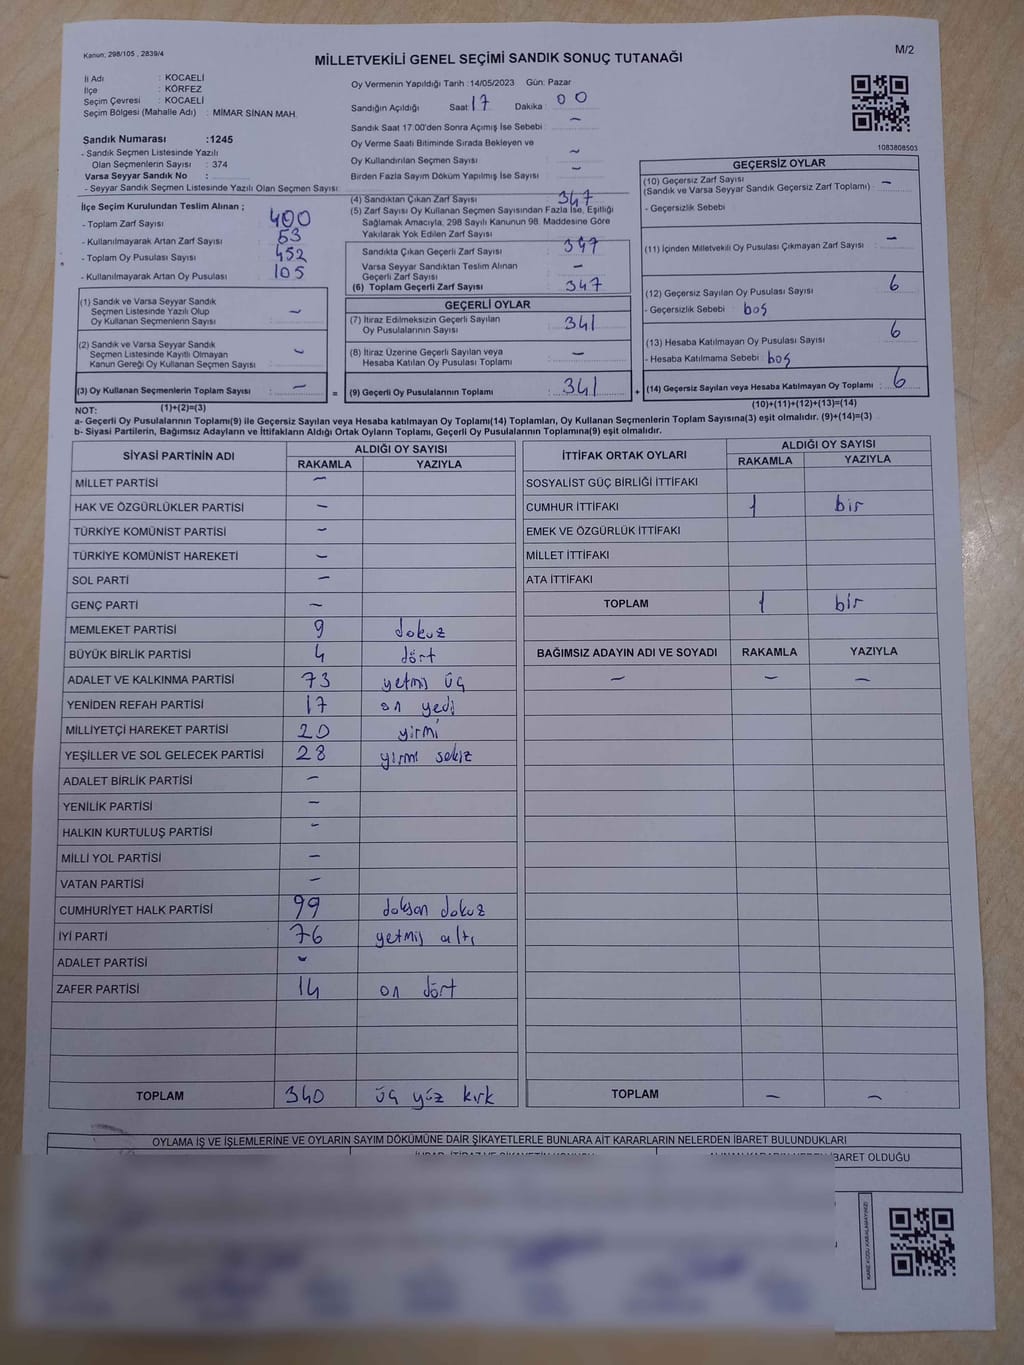 Kanun: 298/105 , 2839/4
MİLLETVEKİLİ GENEL SEÇİMİ SANDIK SONUÇ TUTANAĞI
M/2
İl Adı : KOCAELİ
İlçe : KÖRFEZ
Seçim Çevresi : KOCAELİ
Seçim Bölgesi (Mahalle Adı) : MİMAR SİNAN MAH.
Sandık Numarası :1245
- Sandık Seçmen Listesinde Yazılı
Olan Seçmenlerin Sayısı : 374
Varsa Seyyar Sandık No :
- Seyyar Sandık Seçmen Listesinde Yazılı Olan Seçmen Sayısı:
İlçe Seçim Kurulundan Teslim Alınan ;
- Toplam Zarf Sayısı : 400
- Kullanılmayarak Artan Zarf Sayısı : 53
- Toplam Oy Pusulası Sayısı : 452
- Kullanılmayarak Artan Oy Pusulası : 105
(1) Sandık ve Varsa Seyyar Sandık
Seçmen Listesinde Yazılı Olup
Oy Kullanan Seçmenlerin Sayısı : –
(2) Sandık ve Varsa Seyyar Sandık
Seçmen Listesinde Kayıtlı Olmayan
Kanun Gereği Oy Kullanan Seçmen Sayısı : –
(3) Oy Kullanan Seçmenlerin Toplam Sayısı : –
Oy Vermenin Yapıldığı Tarih :14/05/2023 Gün: Pazar
Sandığın Açıldığı Saat : 17 Dakika : 00
Sandık Saat 17:00'den Sonra Açımış İse Sebebi : –
Oy Verme Saati Bitiminde Sırada Bekleyen ve
Oy Kullandırılan Seçmen Sayısı : –
Birden Fazla Sayım Döküm Yapılmış İse Sayısı : –
(4) Sandıktan Çıkan Zarf Sayısı : 347
(5) Zarf Sayısı Oy Kullanan Seçmen Sayısından Fazla İse, Eşitliği
Sağlamak Amacıyla, 298 Sayılı Kanunun 98. Maddesine Göre
Yakılarak Yok Edilen Zarf Sayısı :
Sandıkta Çıkan Geçerli Zarf Sayısı : 347
Varsa Seyyar Sandıktan Teslim Alınan
Geçerli Zarf Sayısı : –
(6) Toplam Geçerli Zarf Sayısı : 347
GEÇERLİ OYLAR
(7) İtiraz Edilmeksizin Geçerli Sayılan
Oy Pusulalarının Sayısı : 341
(8) İtiraz Üzerine Geçerli Sayılan veya
Hesaba Katılan Oy Pusulası Toplamı : –
= (9) Geçerli Oy Pusulalarının Toplamı : 341
1083808503
GEÇERSİZ OYLAR
(10) Geçersiz Zarf Sayısı : –
(Sandık ve Varsa Seyyar Sandık Geçersiz Zarf Toplamı)
- Geçersizlik Sebebi :
(11) İçinden Milletvekili Oy Pusulası Çıkmayan Zarf Sayısı : –
(12) Geçersiz Sayılan Oy Pusulası Sayısı : 6
- Geçersizlik Sebebi : boş
(13) Hesaba Katılmayan Oy Pusulası Sayısı : 6
- Hesaba Katılmama Sebebi : boş
+ (14) Geçersiz Sayılan veya Hesaba Katılmayan Oy Toplamı : 6
NOT: (1)+(2)=(3)
(10)+(11)+(12)+(13)=(14)
a- Geçerli Oy Pusulalarının Toplamı(9) ile Geçersiz Sayılan veya Hesaba katılmayan Oy Toplamı(14) Toplamları, Oy Kullanan Seçmenlerin Toplam Sayısına(3) eşit olmalıdır. (9)+(14)=(3)
b- Siyasi Partilerin, Bağımsız Adayların ve İttifakların Aldığı Ortak Oyların Toplamı, Geçerli Oy Pusulalarının Toplamına(9) eşit olmalıdır.
SİYASİ PARTİNİN ADI ALDIĞI OY SAYISI
RAKAMLA YAZIYLA
MİLLET PARTİSİ –
HAK VE ÖZGÜRLÜKLER PARTİSİ –
TÜRKİYE KOMÜNİST PARTİSİ –
TÜRKİYE KOMÜNİST HAREKETİ –
SOL PARTİ –
GENÇ PARTİ –
MEMLEKET PARTİSİ 9 dokuz
BÜYÜK BİRLİK PARTİSİ 4 dört
ADALET VE KALKINMA PARTİSİ 73 yetmiş üç
YENİDEN REFAH PARTİSİ 17 on yedi
MİLLİYETÇİ HAREKET PARTİSİ 20 yirmi
YEŞİLLER VE SOL GELECEK PARTİSİ 28 yirmi sekiz
ADALET BİRLİK PARTİSİ –
YENİLİK PARTİSİ –
HALKIN KURTULUŞ PARTİSİ –
MİLLİ YOL PARTİSİ –
VATAN PARTİSİ –
CUMHURİYET HALK PARTİSİ 99 doksan dokuz
İYİ PARTİ 76 yetmiş altı
ADALET PARTİSİ –
ZAFER PARTİSİ 14 on dört
TOPLAM 340 üç yüz kırk
İTTİFAK ORTAK OYLARI ALDIĞI OY SAYISI
RAKAMLA YAZIYLA
SOSYALİST GÜÇ BİRLİĞİ İTTİFAKI
CUMHUR İTTİFAKI 1 bir
EMEK VE ÖZGÜRLÜK İTTİFAKI
MİLLET İTTİFAKI
ATA İTTİFAKI
TOPLAM 1 bir
BAĞIMSIZ ADAYIN ADI VE SOYADI RAKAMLA YAZIYLA
– – –
TOPLAM – –
OYLAMA İŞ VE İŞLEMLERİNE VE OYLARIN SAYIM DÖKÜMÜNE DAİR ŞİKAYETLERLE BUNLARA AİT KARARLARIN NELERDEN İBARET BULUNDUKLARI
İBARET OLDUĞU
KARE KODU KARALAMAYINIZ!